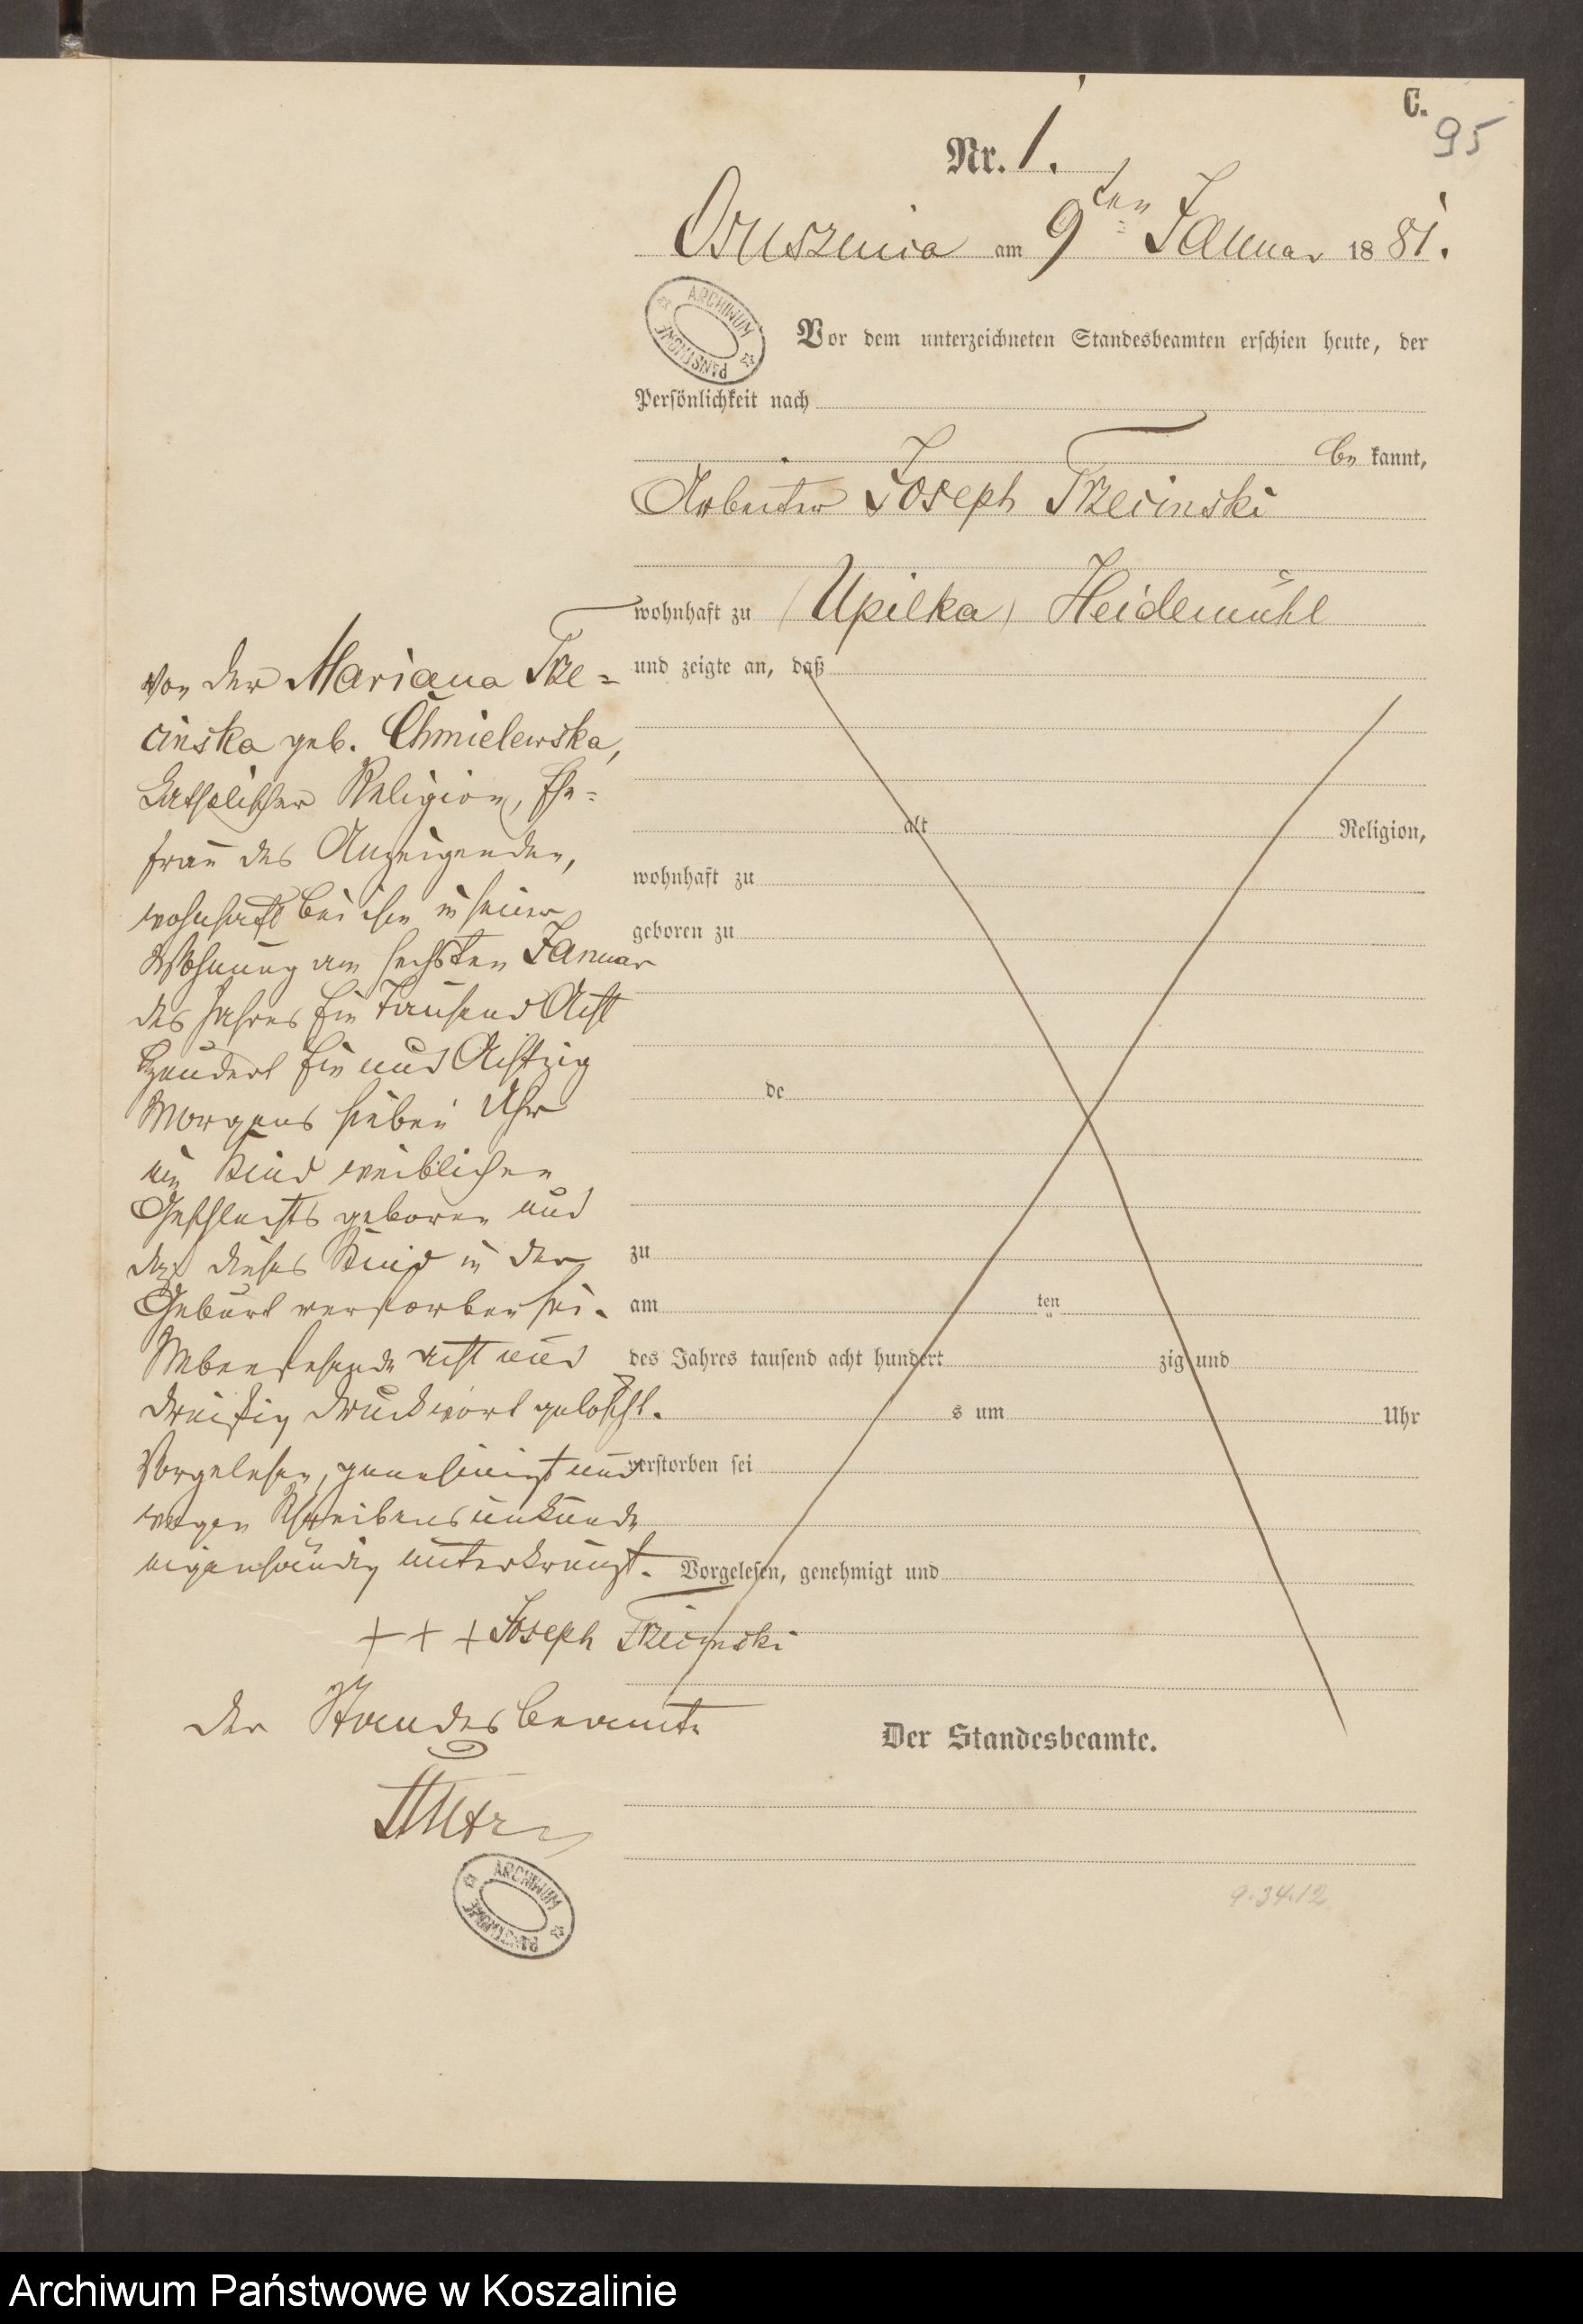 C.
95
Nr. 1.
Osusznica am 9ten Januar 1881.
ARCHIWUM PAŃSTWOWE
Vor dem unterzeichneten Standesbeamten erschien heute, der
Persönlichkeit nach
be kannt,
Arbeiter Joseph Trzecinski
wohnhaft zu (Upilka) Heidemühl
und zeigte an, daß
alt Religion,
wohnhaft zu
geboren zu
de
zu
am ten
des Jahres tausend acht hundert zig und
s um Uhr
verstorben sei
Vorgelesen, genehmigt und
Der Standesbeamte.
von der Mariana Trze=
cinska geb. Chmielewska,
katholischer Religion, Ehe=
frau des Anzeigenden,
wohnhaft bei ihm in seiner
Wohnung am sechsten Januar
des Jahres Ein Tausend Acht
Hundert Ein und Achtzig
Morgens sieben Uhr
ein Kind weiblichen
Geschlechts geboren und
daß dieses Kind in der
Geburt verstorben sei.
Nebenstehende acht und
dreißig Druckwort gelöscht.
Vorgelesen, genehmigt und
wegen Schreibensunkunde
eigenhändig unterkreuzt.
+ + + Joseph Trzecinski
Der Standesbeamte
ARCHIWUM PAŃSTWOWE
9.34.12
Archiwum Państwowe w Koszalinie